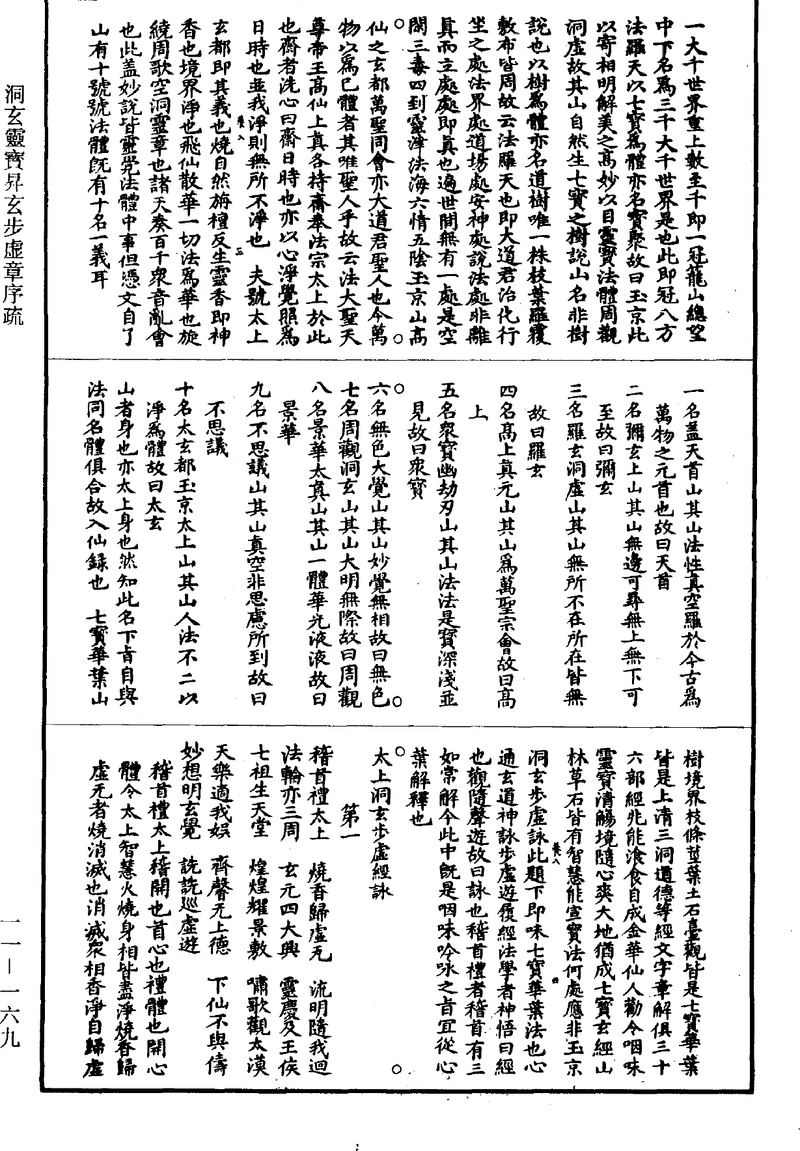 洞玄靈寶昇玄步虛章序疏
一大千世界重上數至千即一冠籠山總望
中下名為三千大千世界是也此即冠八方
法羅天以七寶為體亦名寶聚故曰玉京此
以寄相明解美之高妙以目靈寶法體周觀
洞虛故其山自然生七寶之樹說山名非樹
說也以樹為體亦名道樹唯一株枝葉羅覆
敷布皆周故云法羅天也即大道君治化行
坐之處法界處道場處安神處說法處非離
真而立處處即真也遍世間無有一處是空
閡三毒四到靈津法海六情五陰玉京山高
仙之玄都萬聖同會亦大道君聖人也今萬
物以為己體者其唯聖人乎故云法大聖天
尊帝王高仙上真各持齋奉法宗太上於此
也齋者洗心曰齋日時也亦以心淨覺照為
日時也並我淨則無所不淨也　夫號太上
玄都即其義也燒自然栴檀反生靈香即神
香也境界淨也飛仙散華一切法為華也旋
繞周歌空洞靈章也諸天奏百千眾音亂會
也此蓋妙說皆靈覺法體中事但憑文自了
山有十號號法體既有十名一義耳
一名蓋天首山其山法性真空羅於今古為
萬物之元首也故曰天首
二名彌玄上山其山無邊可尋無上無下可
至故曰彌玄
三名羅玄洞虛山其山無所不在所在皆無
故曰羅玄
四名高上真元山其山為萬聖宗會故曰高
上
五名眾寶幽劫刃山其山法法是寶深淺並
見故曰眾寶
六名無色大覺山其山妙覺無相故曰無色
七名周觀洞玄山其山大明無際故曰周觀
八名景華太真山其山一體華光液液故曰
景華
九名不思議山其山真空非思慮所到故曰
不思議
十名太玄都玉京太上山其山人法不二以
淨為體故曰太玄
山者身也亦太上身也然知此名下旨自與
法同名體俱合故入仙錄也　七寶華葉山
樹境界枝條莖葉土石臺觀皆是七寶華葉
皆是上清三洞道德等經文字章解俱三十
六部經兆能飡食自成金華仙人勸令咽味
靈寶清觴境隨心爽大地猶成七寶玄經山
林草石皆有智慧能宣寶法何處應非玉京
洞玄步虛詠此題下即味七寶華葉法也心
通玄道神詠步虛遊履經法學者神悟曰經
也觀隨聲遊故曰詠也稽首禮者稽首有三
如常解今此中既是咽味吟詠之旨宜從心
葉解釋也
太上洞玄步虛經詠
第一
稽首禮太上　燒香歸虛无　流明隨我迴
法輪亦三周　玄元四大興　靈慶及王侯
七祖生天堂　煌煌耀景敷　嘯歌觀太漠
天樂適我娛　齊馨无上德　下仙不與儔
妙想明玄覺　詵詵巡虛遊
稽首禮太上稽開也首心也禮體也開心
體令太上智慧火燒身相皆盡淨燒香歸
虛无者燒消滅也消滅眾相香淨自歸虛
一一—一六九